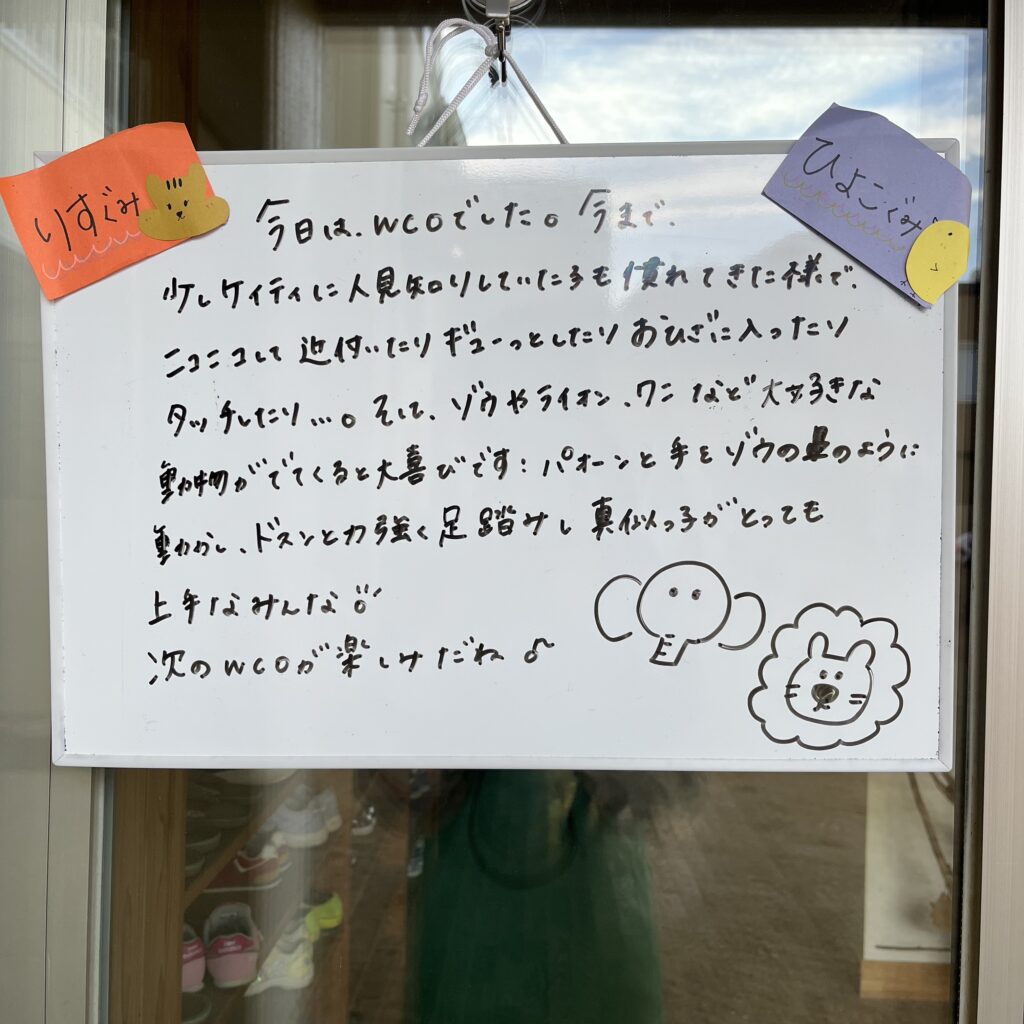 りすぐみ
ひよこぐみ
今日は、WCOでした。今まで、
少しケイティに人見知りしていた子も慣れてきた様で、
ニコニコして近付いたりギューっとしたりおひざに入ったり
タッチしたり…。そして、ゾウやライオン、ワニなど大好きな
動物がでてくると大喜びです！パオーンと手をゾウの鼻のように
動かし、ドスンと力強く足踏みし真似っ子がとっても
上手なみんな
次のWCOが楽しみだね♪